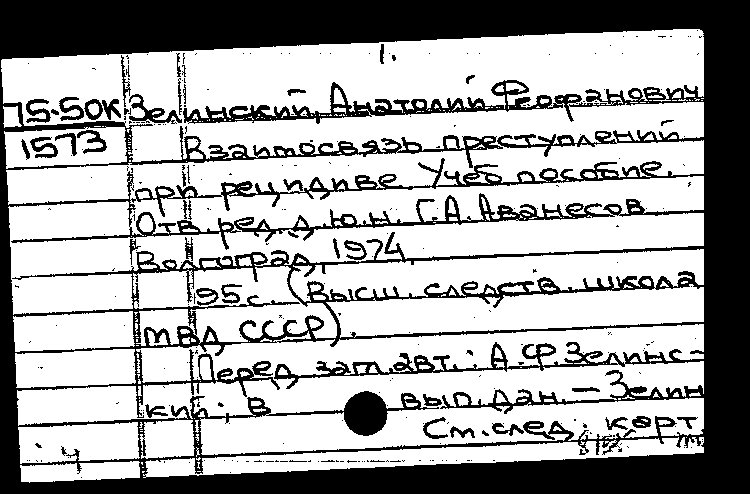 1.
75-50К Зелинский, Анатолий Феофанович
1573 Взаимосвязь преступлений
при рецидиве. Учеб. пособие.
Отв. ред. д.ю.н. Г.А. Аванесов
Волгоград, 1974.
95 с. (Высш. следств. школа
МВД СССР).
Перед загл. авт.: А.Ф. Зелинс-
кий; в вып. дан. — Зелин
См. след. карт.
4